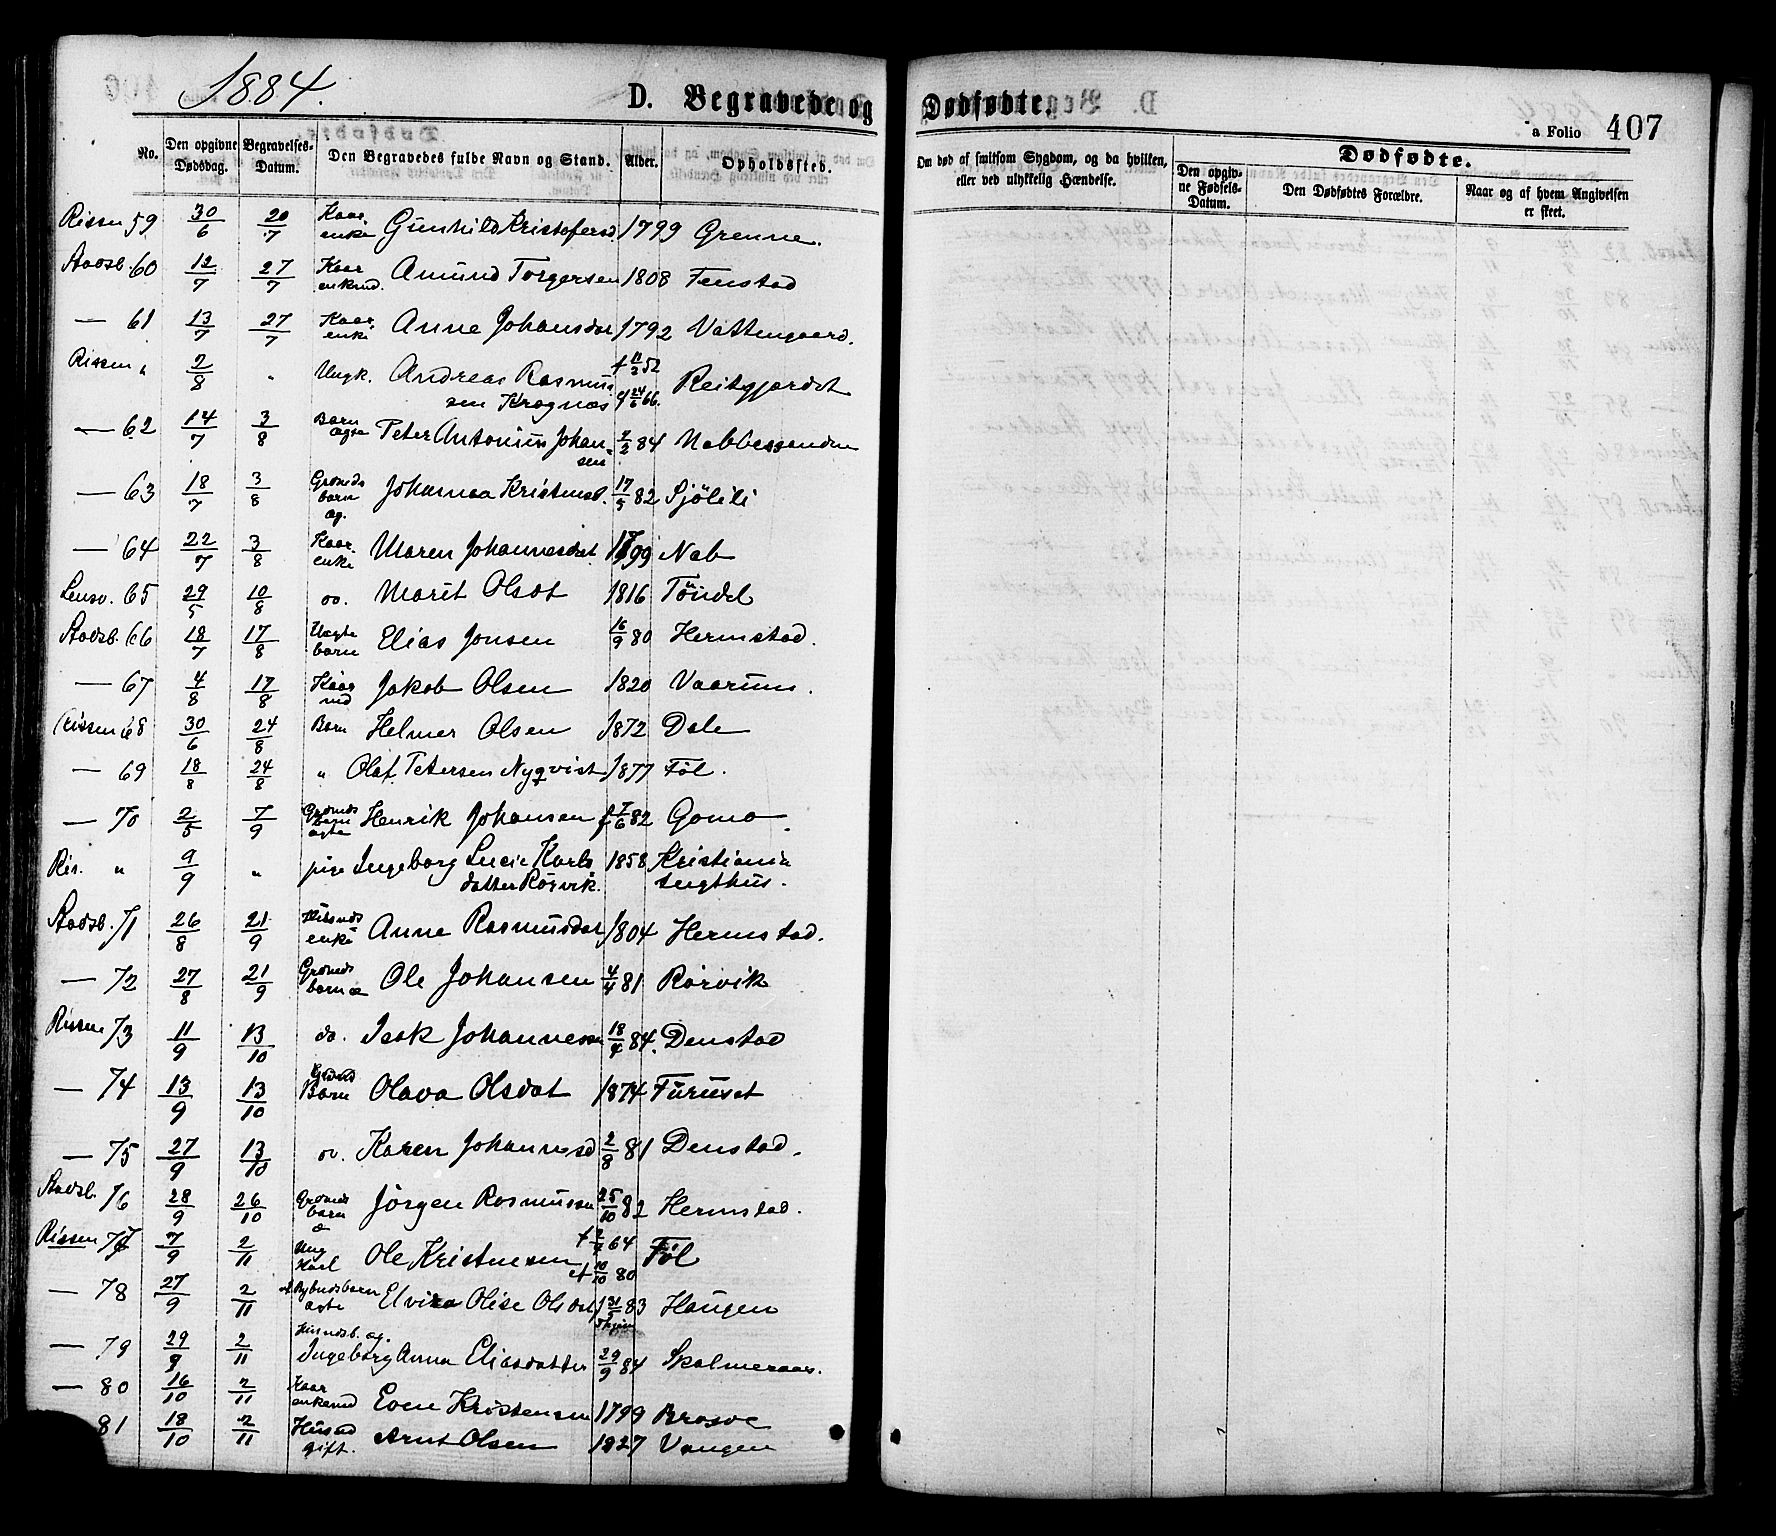 1884.
D. Begravede og Dødfødte.
a Folio 407
No. Den opgivne Dødsdag. Begravelses-Datum. Den Begravedes fulde Navn og Stand. Alder. Opholdssted.
Om død af smitsom Sygdom, og da hvilken, eller ved ulykkelig Hændelse.
Dødfødte.
Den opgivne Fødsels-Datum. Den Dødfødtes Forældre. Naar og af hvem Angivelsen er skeet.
Rissen 59 30/6 20/7 Kaar enke Gunhild Kristofersd. 1799 Grenne.
Stadsb. 60 12/7 27/7 Kaar enkmd. Amund Torgersen 1808 Fenstad
— 61 13/7 27/7 Kaar enke Anne Johansdat 1792 Vattengaard.
Rissen " 2/8 " Ungk. Andreas Rasmus
sen Kragnæs f 11/2 52 cf 24/6 66. Reitgjærdet
— 62 14/7 3/8 Barn ægte Peter Antonius Johan
sen 2/2 84 Nabbessanden
— 63 18/7 3/8 Grmds barn æg. Johanna Kristensd. 17/5 82 Sjöliti
— 64 22/7 3/8 Kaar. enke Maren Johannesdat 1799 Nab
Lensv. 65 29/5 10/8 do. Marit Olsdt 1816 Töndel
Stadsb. 66 18/7 17/8 Uægte barn Elias Jonsen 16/9 80 Hermstad.
— 67 4/8 17/8 Kaar md Jakob Olsen 1820 Vaarum.
Rissen 68 30/6 24/8 Barn Helmer Olsen 1872 Dale
— 69 18/8 24/8 " Olaf Petersen Nyqvist 1877 Föl.
— 70 2/5 7/9 Grmds barn ægte Henrik Johansen f 7/6 82 Gomo
Ris. " 9/9 " pige Ingeborg Lucie Karls
datter Rörvik. 1858 Kristiania
tugthus.
Stadsb. 71 26/8 21/9 Husmds enke Anne Rasmusdat 1804 Hermstad.
— 72 27/8 21/9 Grmds barn æ Ole Johansen 4/4 81 Rörvik
Rissen 73 11/9 13/10 do. Isak Johannessen 18/4 84. Denstad
— 74 13/9 13/10 Grmd Barn Olava Olsdat 1874 Furuset
— 75 27/9 13/10 do. Karen Johannesd 2/8 81 Denstad.
Stadsb. 76 28/9 26/10 Grmds barn æ Jörgen Rasmussen 25/10 82 Hermstad.
Rissen 77 7/9 2/11 Ung Karl Ole Kristensen f 2/2 64 cf 10/10 80 Föl
— 78 27/9 2/11 ægte Elvira Olise Olsdat f 31/5 83 Haugen
— 79 29/9 2/11 Husmdsb. æg.
Ingeborg Anna Eliasdatter 29/9 84 Skalmeraas.
— 80 16/10 2/11 Kaar enkemd Even Kristensen 1799 Brasve
81 18/10 2/11 Husmd gift. Arnt Olsen 1827 Vangen